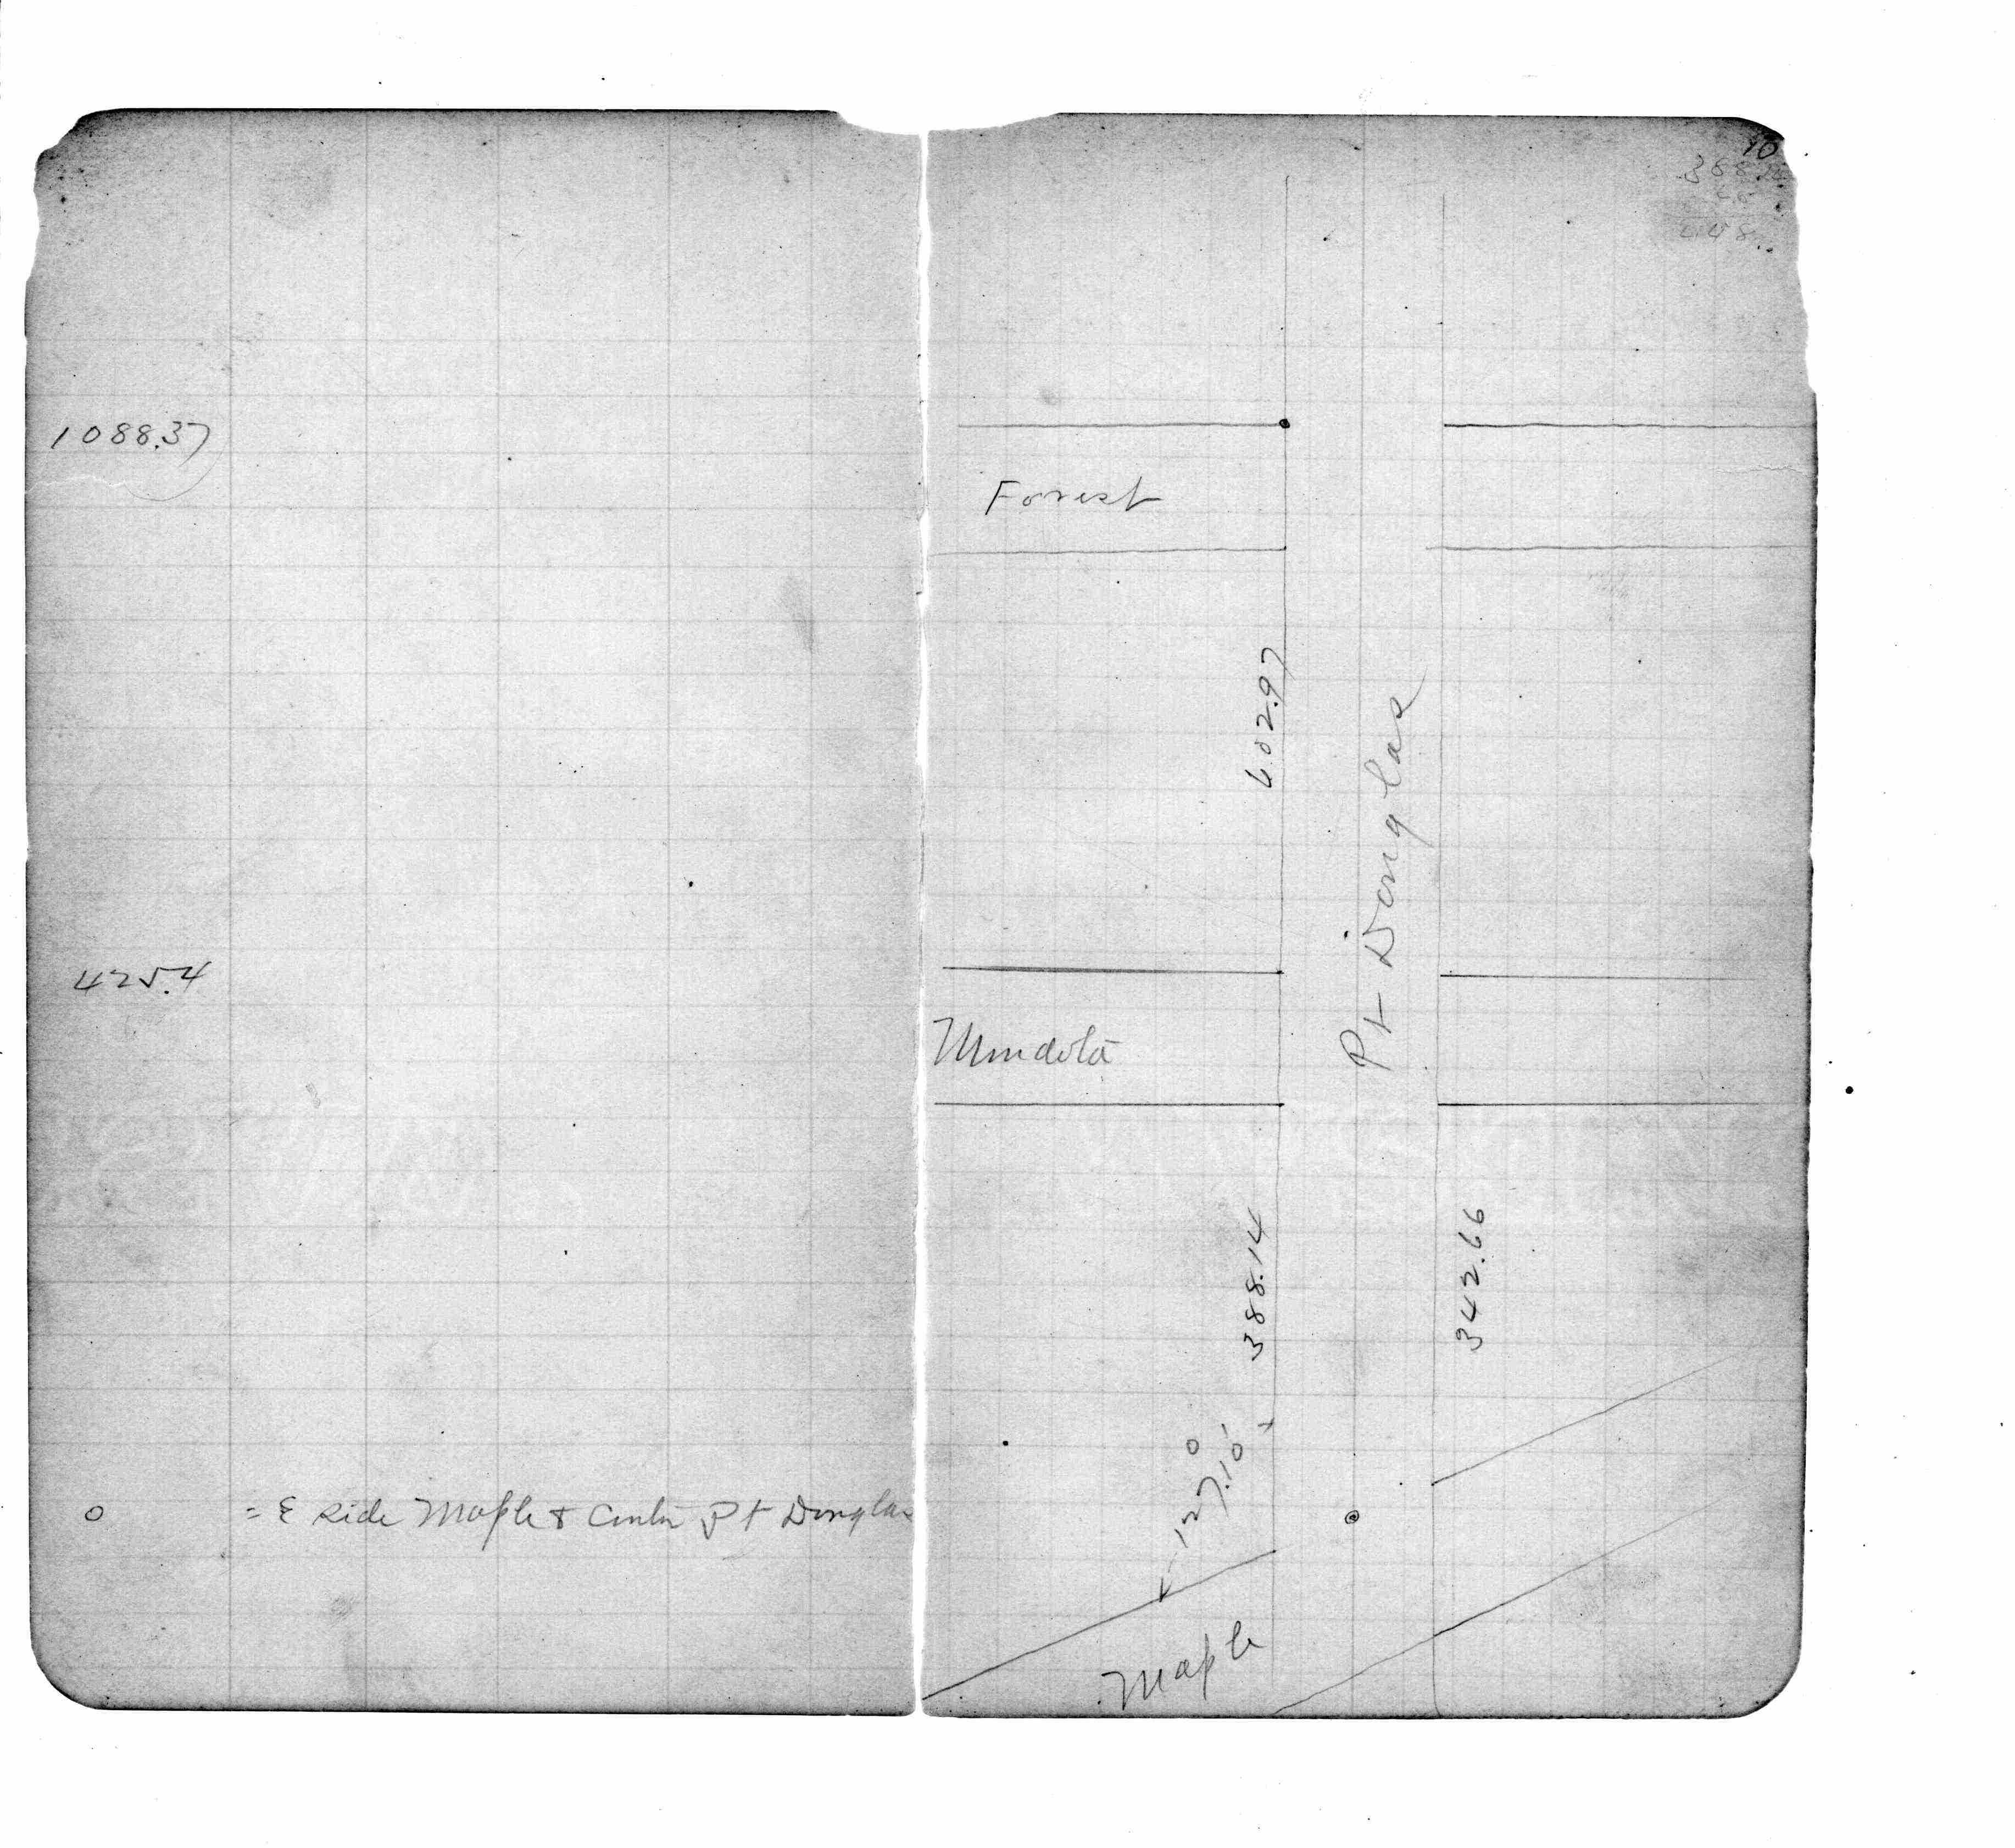 1088.37
425.4
0 = E side Maple & Center Pt Douglas
10
388.14
Forest
602.97
Pt Douglas
Mendota
388.14
342.66
127.10'
0
Maple